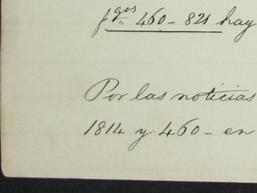 fgos 460-821 hay
Por las noticias
1814 y 460- en